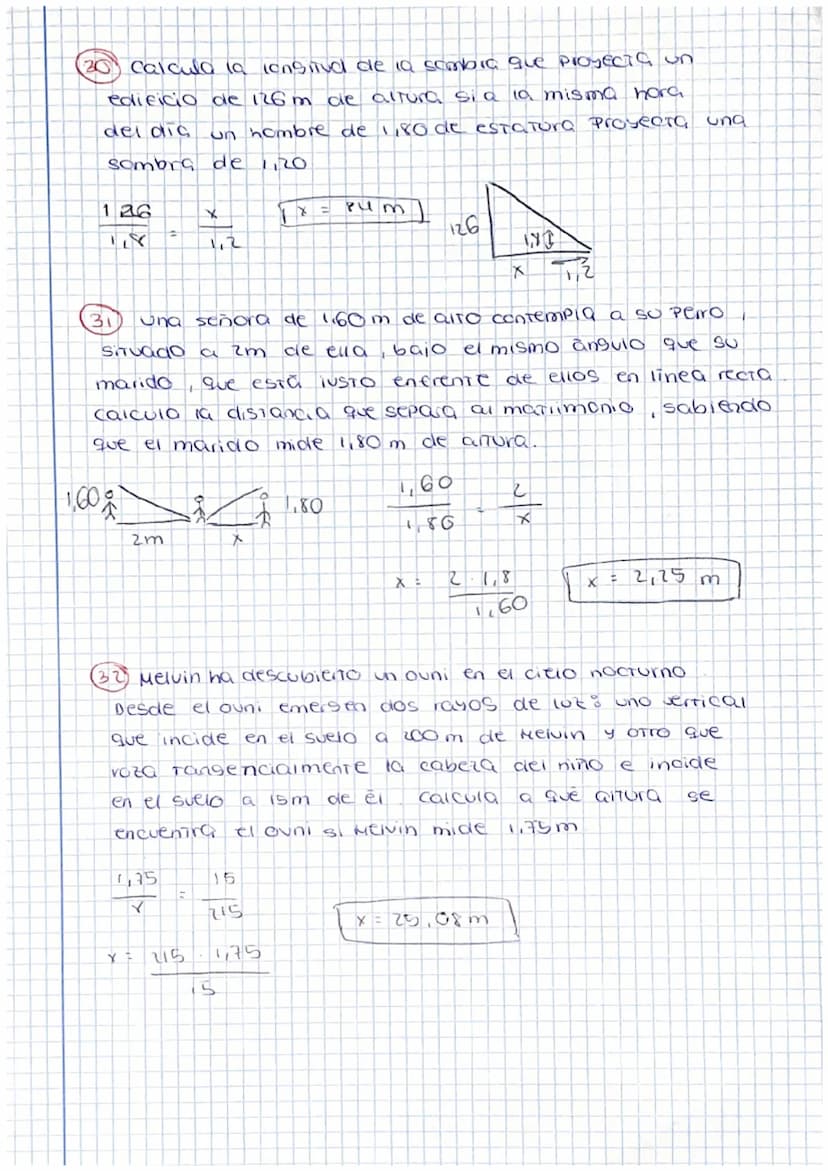 20 Calcula la longitud de la sombra que proyecta un
edificio de 126 m de altura si a la misma hora
del día un hombre de 1,80 de estatura proyecta una
sombra de 1,20
126 / 1,8 = x / 1,2
x = 84 m
126
1,8
x 1,2
31 Una señora de 1,60 m de alto contempla a su perro,
situado a 2m de ella, bajo el mismo ángulo que su
marido, que está justo enfrente de ellos en línea recta.
Calcula la distancia que separa al matrimonio, sabiendo
que el marido mide 1,80 m de altura.
1,60
1,80
2m
x
1,60 / 1,80 = 2 / x
x = 2 · 1,8 / 1,60
x = 2,25 m
32 Melvin ha descubierto un ovni en el cielo nocturno
Desde el ovni emergen dos rayos de luz: uno vertical
que incide en el suelo a 200m de Melvin y otro que
roza tangencialmente la cabeza del niño e incide
en el suelo a 15m de él. Calcula a qué altura se
encuentra el ovni si Melvin mide 1,75m
1,75 / x = 15 / 215
x = 215 · 1,75 / 15
x = 25,08 m